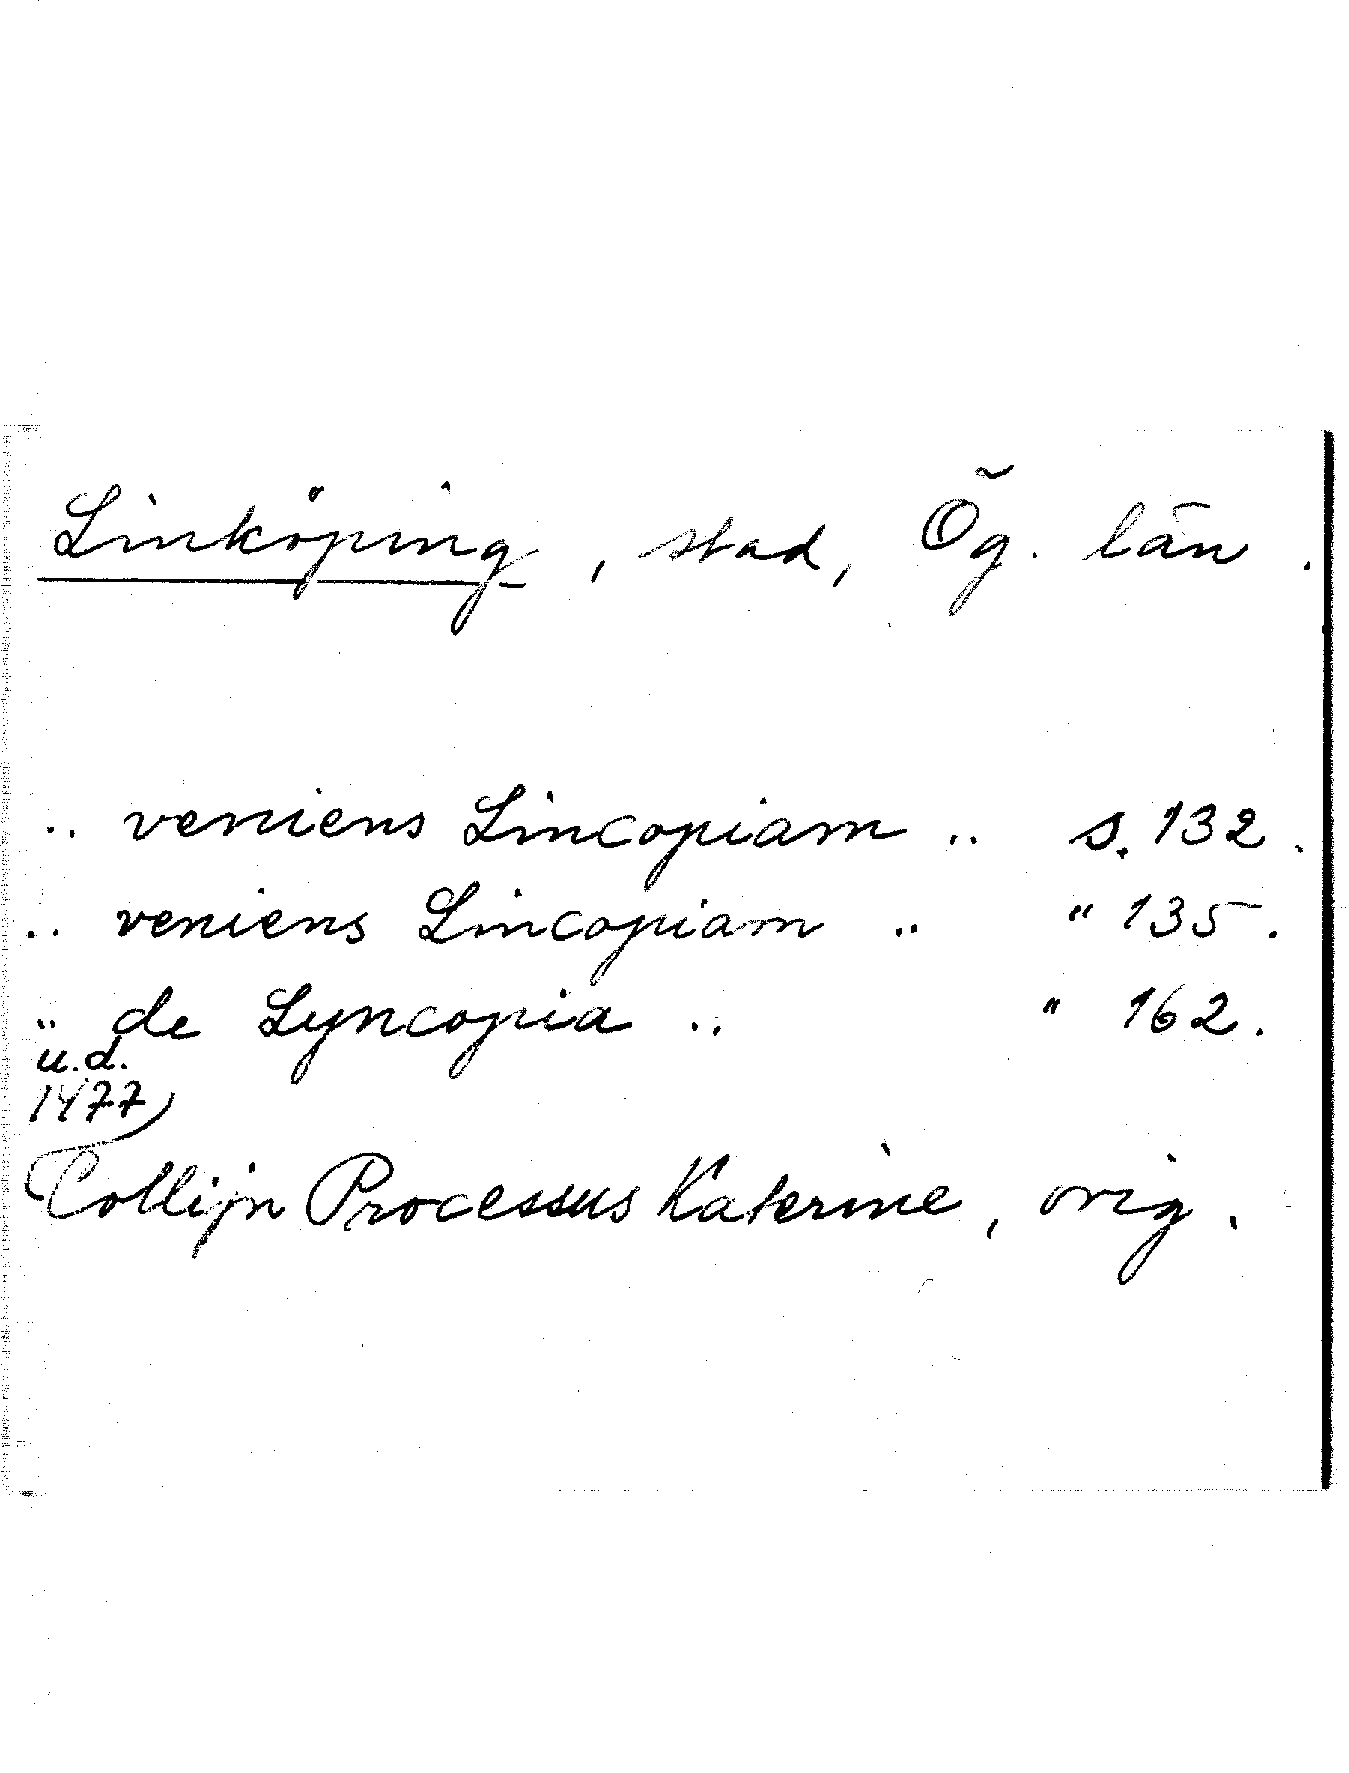 Linköping, stad, Ög. län.
.. veniens Lincopiam .. s. 132.
.. veniens Lincopiam .. " 135.
.. de Lyncopia .. " 162.
u.d.
1477
Collijn Processus Katerine, orig.